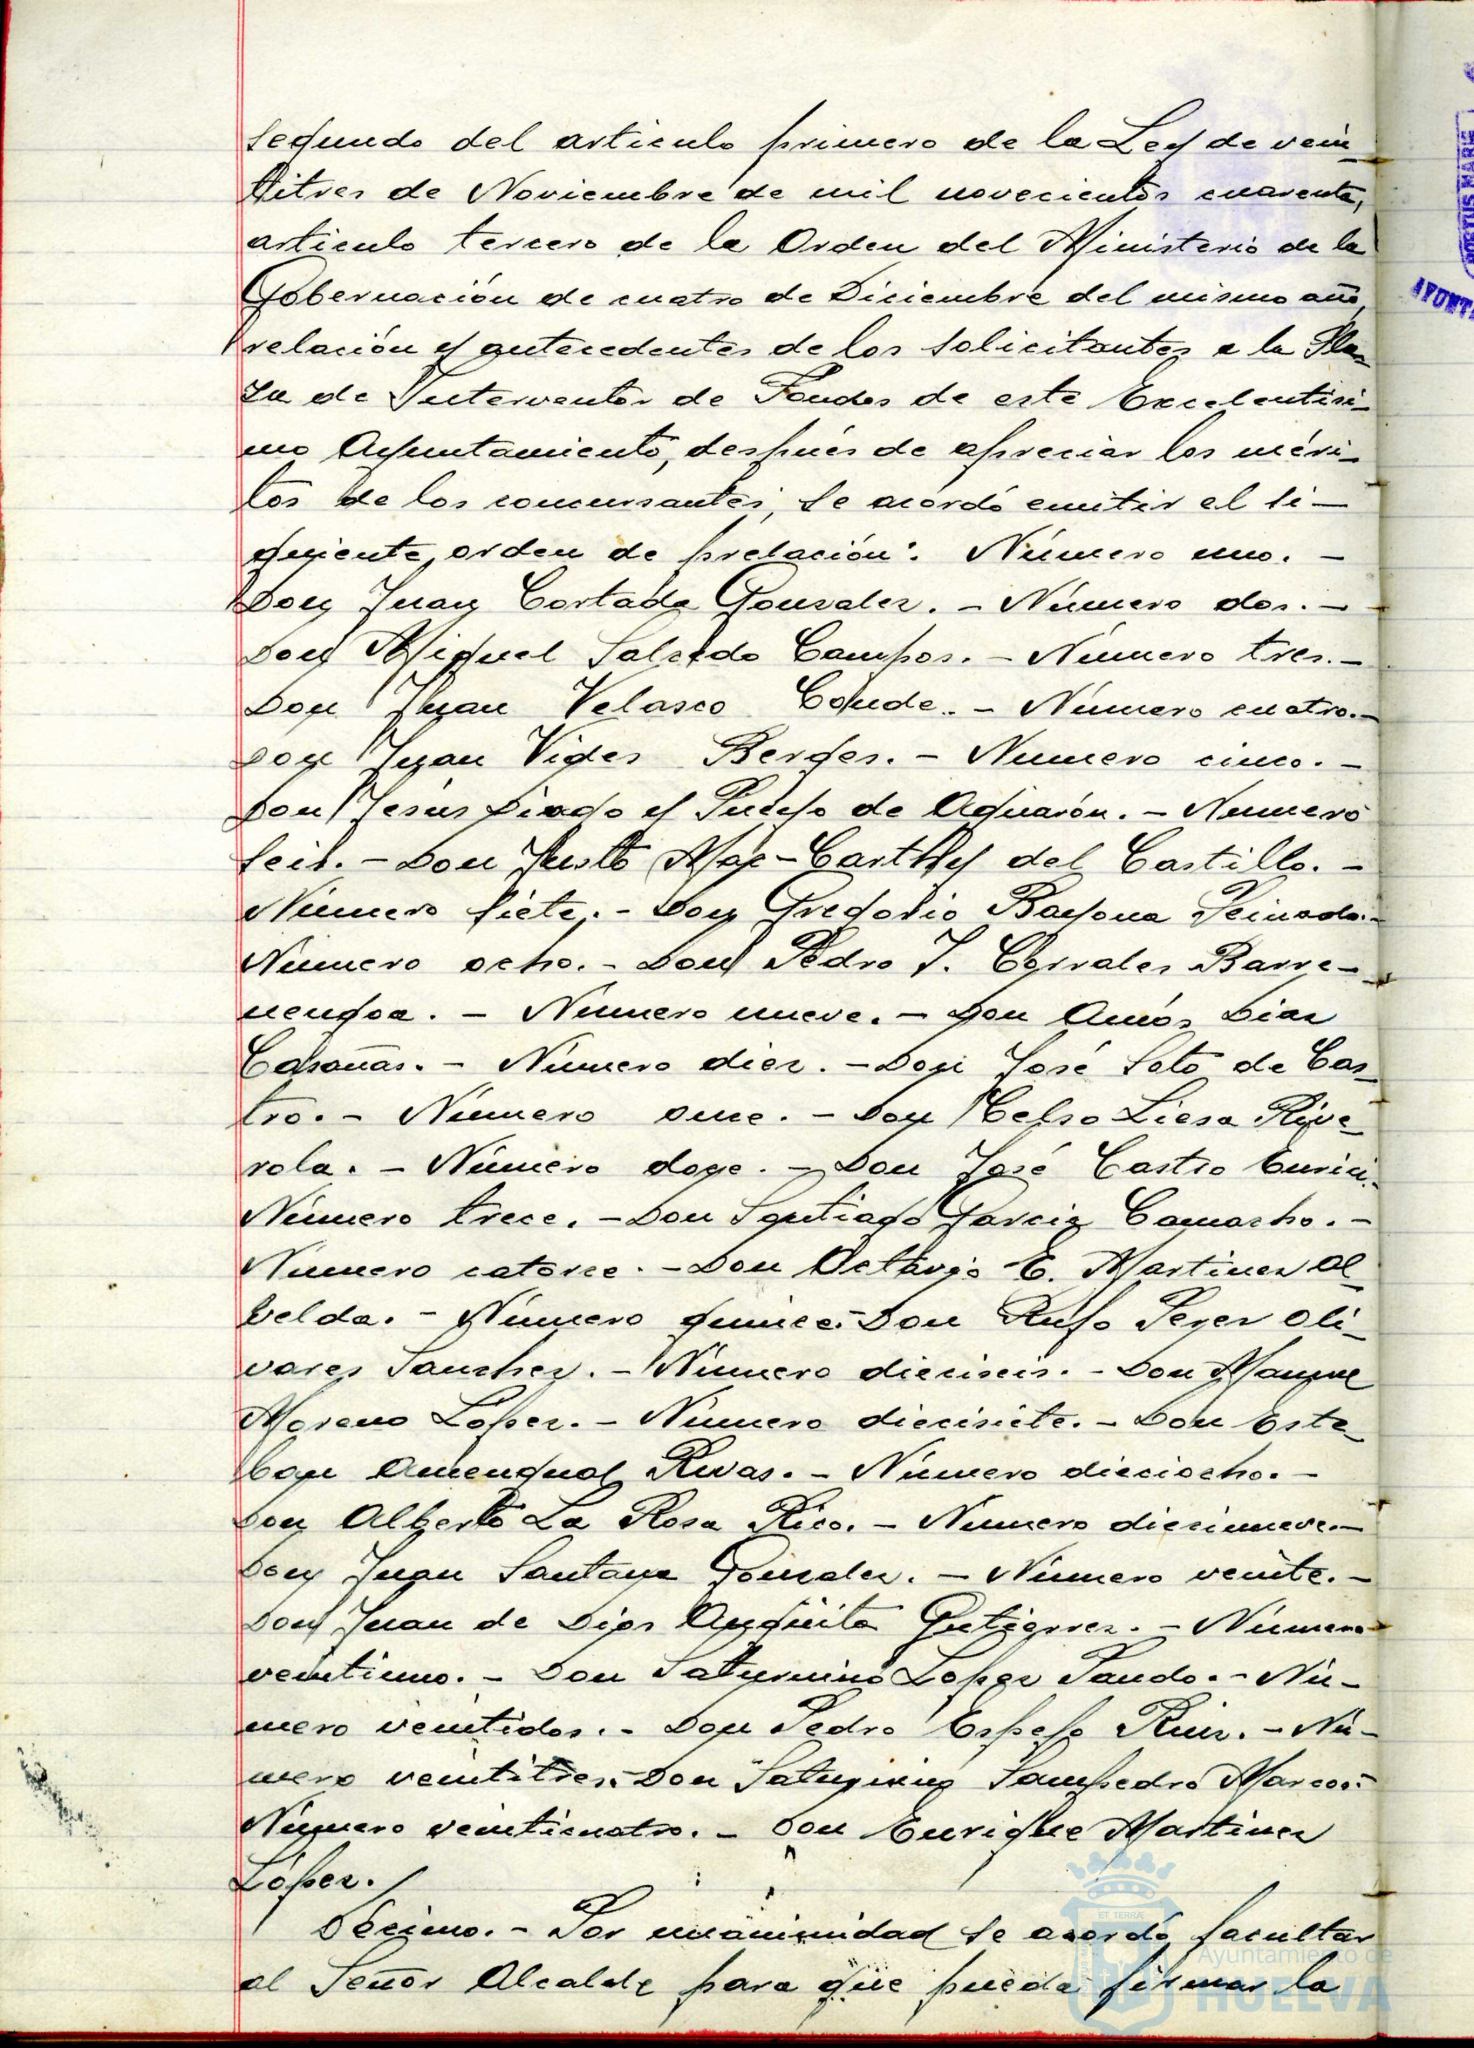 segundo del articulo primero de la Ley de vein-
titres de Noviembre de mil novecientos cuarenta,
articulo tercero de la Orden del Ministerio de la
Gobernación de cuatro de Diciembre del mismo año,
relación y antecedentes de los solicitantes a la Pla-
za de Interventor de Fondos de este Excelentisi-
mo Ayuntamiento, después de apreciar los méri-
tos de los concursantes, se acordó emitir el si-
guiente orden de prelación: Número uno. -
Don Juan Cortada Gonzalez. - Número dos. -
Don Miguel Salcedo Campos. - Número tres. -
Don Juan Velasco Conde. - Número cuatro. -
Don Juan Viges Berges. - Numero cinco. -
Don Jesús Diago y Pueyo de Aguarón. - Numero
seis. - Don Justo Mac-Carthy del Castillo. -
Número siete. - Don Gregorio Bayona Peinado. -
Número ocho. - Don Pedro J. Corrales Barre-
nengoa. - Número nueve. - Don Amós Diaz
Casañas. - Número diez. - Don José Soto de Cas-
tro. - Número once. - Don Celso Liesa Rive-
rola. - Número doce. - Don José Castro
Número trece. - Don Santiago Garcia Camacho. -
Número catorce. - Don Octavio E. Martinez Al-
belda. - Número quince. - Don Rufo Oli-
vares Sanchez. - Número dieciseis. - Don Manuel
Moreno López. - Número diecisiete. - Don Este-
ban Amengual Rivas. - Número dieciocho. -
Don Alberto La Rosa Rico. - Número diecinueve. -
Don Juan Santana Gonzalez. - Número veinte. -
Don Juan de Dios Anguita Gutierrez. - Número
veintiuno. - Don Saturnino Lopez Pando. - Nú-
mero veintidos. - Don Pedro Espejo Ruiz. - Nú-
mero veintitres. - Don Saturnino Sampedro Marcos. -
Número veinticuatro. - Don Enrique Martinez
López.
Décimo. - Por unanimidad se acordó facultar
al Señor Alcalde para que pueda firmar la
PORTUS MARIS
AYUNT
ET TERRÆ
Ayuntamiento de
HUELVA